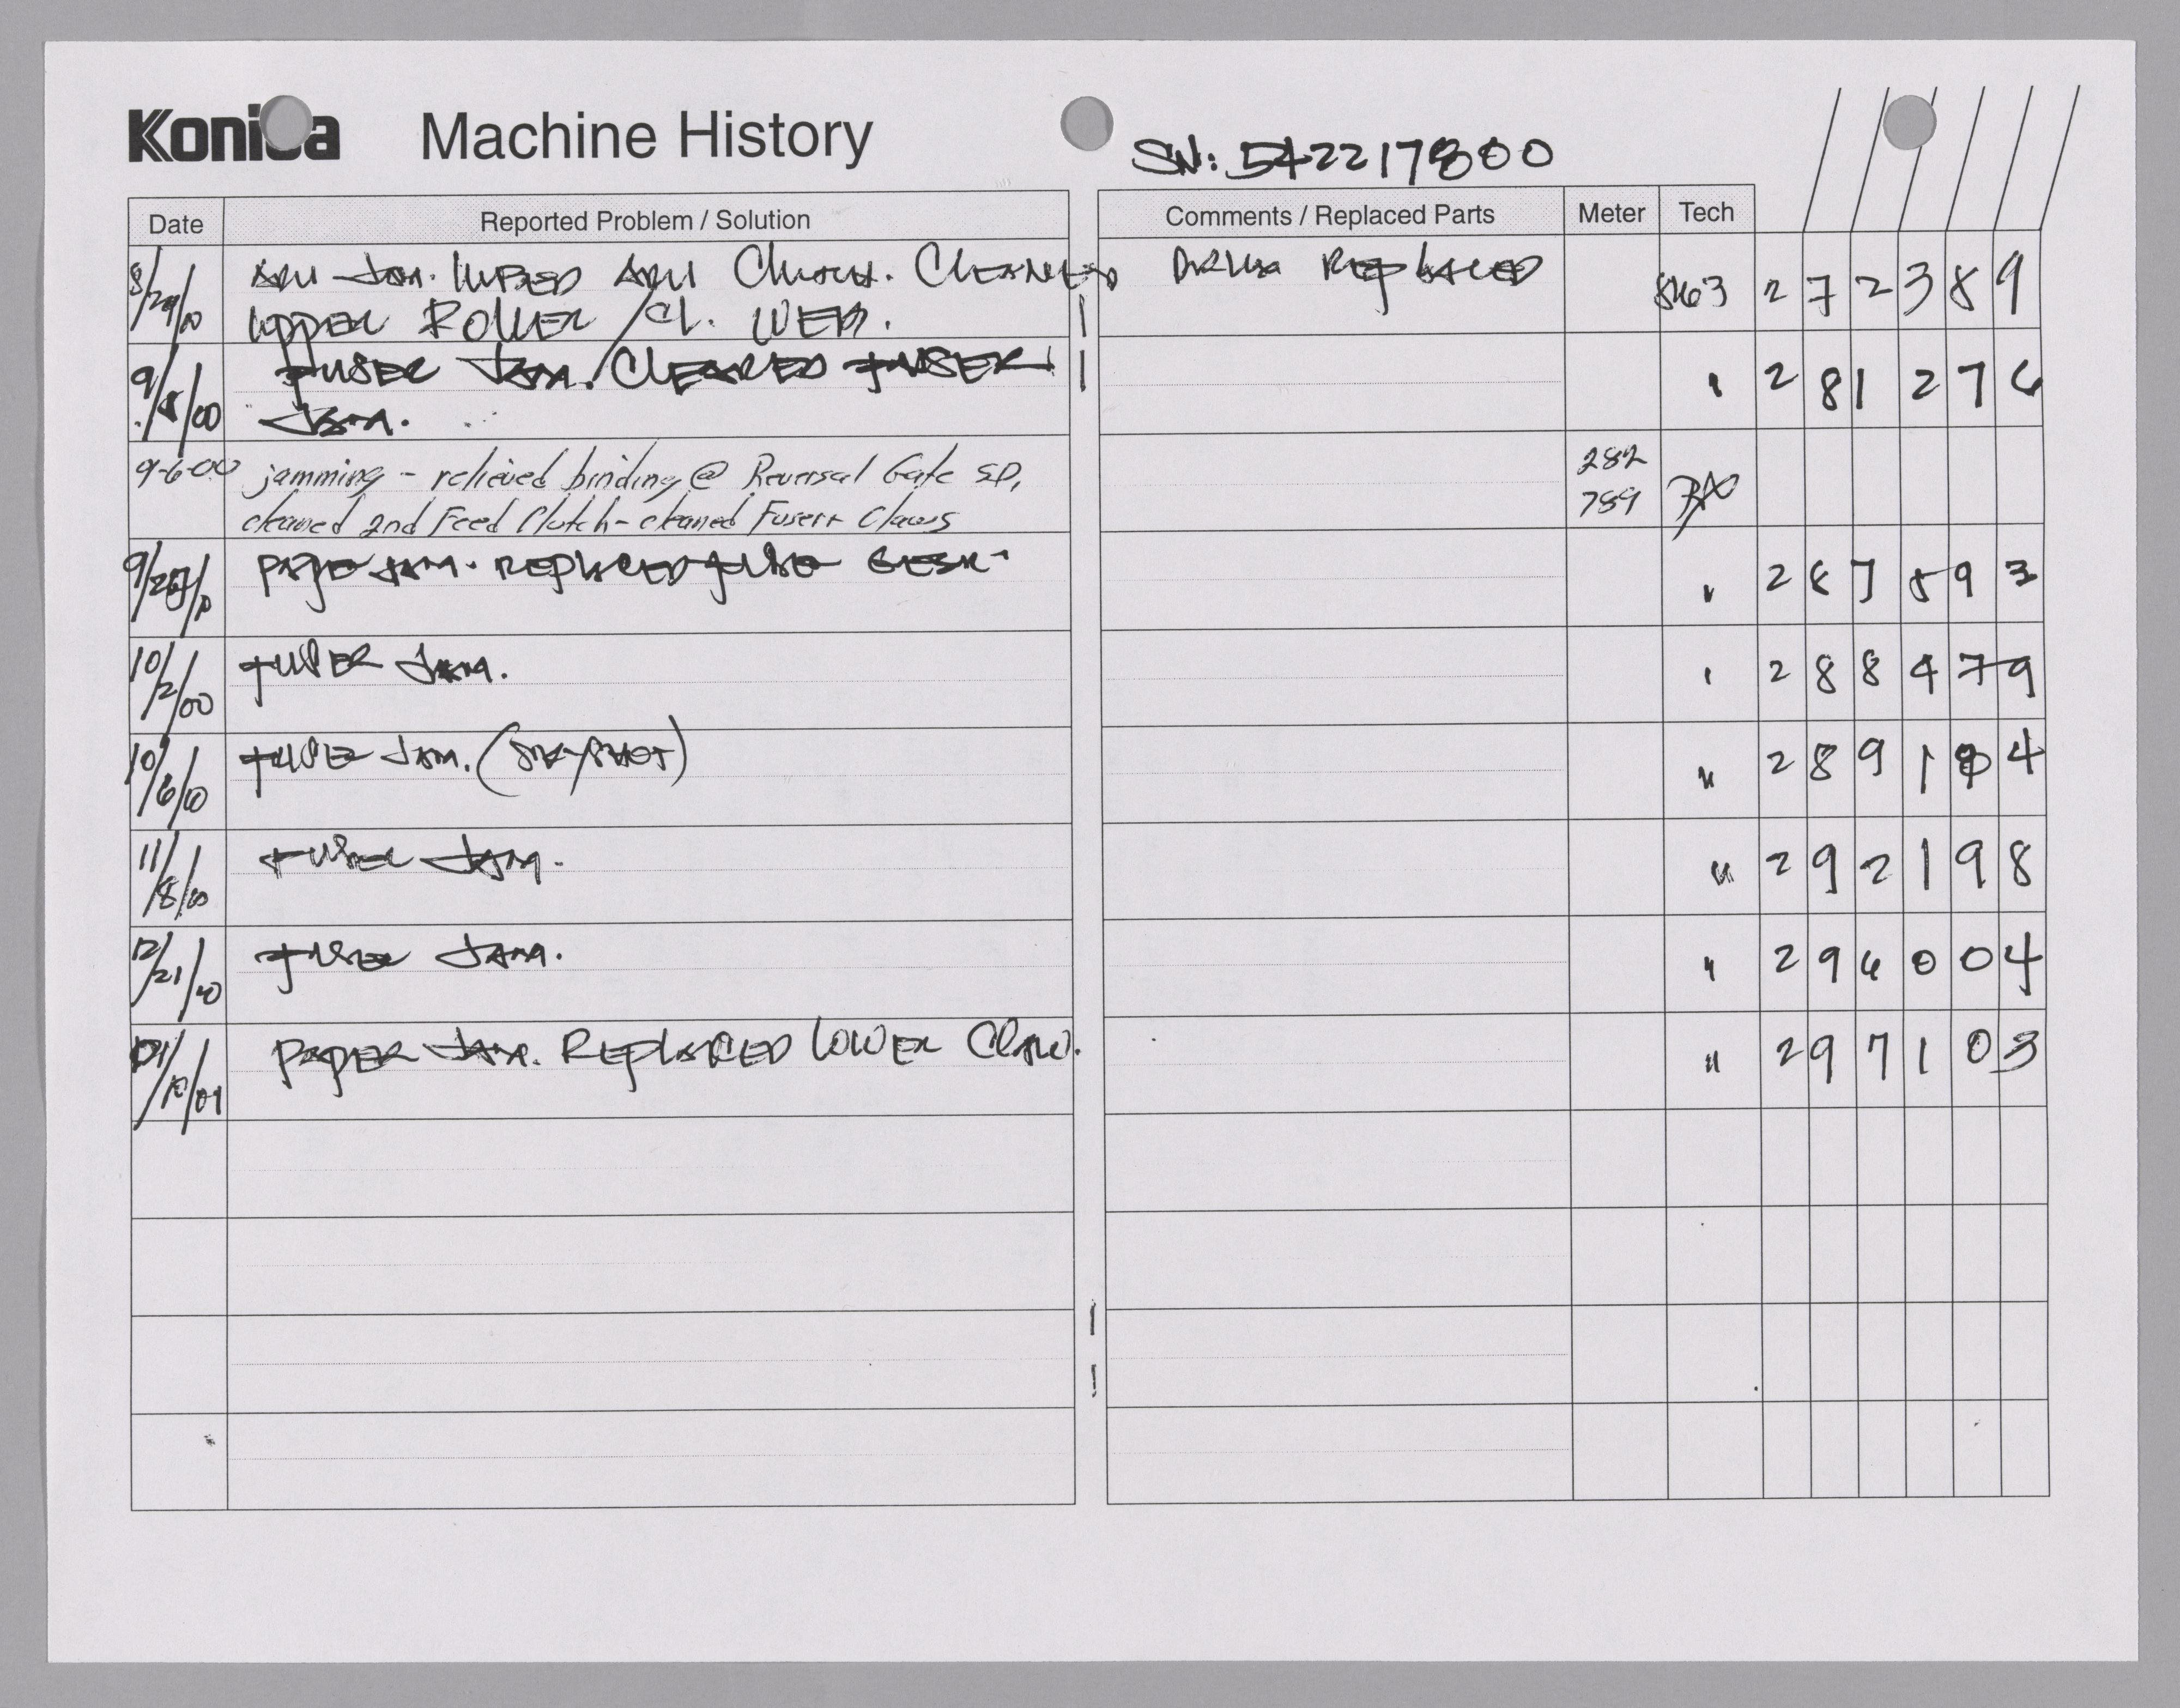 Konica Machine History
SN: 542217800
Date Reported Problem / Solution Comments / Replaced Parts Meter Tech
8/29/00 ADU JAM. LUBED ADU Clutch. CLEANED DRUM REPLACED 8463 2 7 2 3 8 9
UPPER ROLLER / CL. WEB.
9/5/00 FUSER JAM. CLEARED FUSER " 2 8 1 2 7 6
JAM.
9-6-00 jamming - relieved binding @ Reversal Gate SD, 282
cleaned 2nd Feed Clutch - cleaned Fuser Claws 789
PAPER JAM. REPLACED FUSER GEAR. " 2 8 7 5 9 3
10/2/00 FUSER JAM. " 2 8 8 4 7 9
10/6/00 FUSER JAM. " 2 8 9 1 4
11/8/00 FUSER JAM. " 2 9 2 1 9 8
12/21/00 FUSER JAM. " 2 9 6 0 0 4
PAPER JAM. REPLACED LOWER CLAW. " 2 9 7 1 0 3